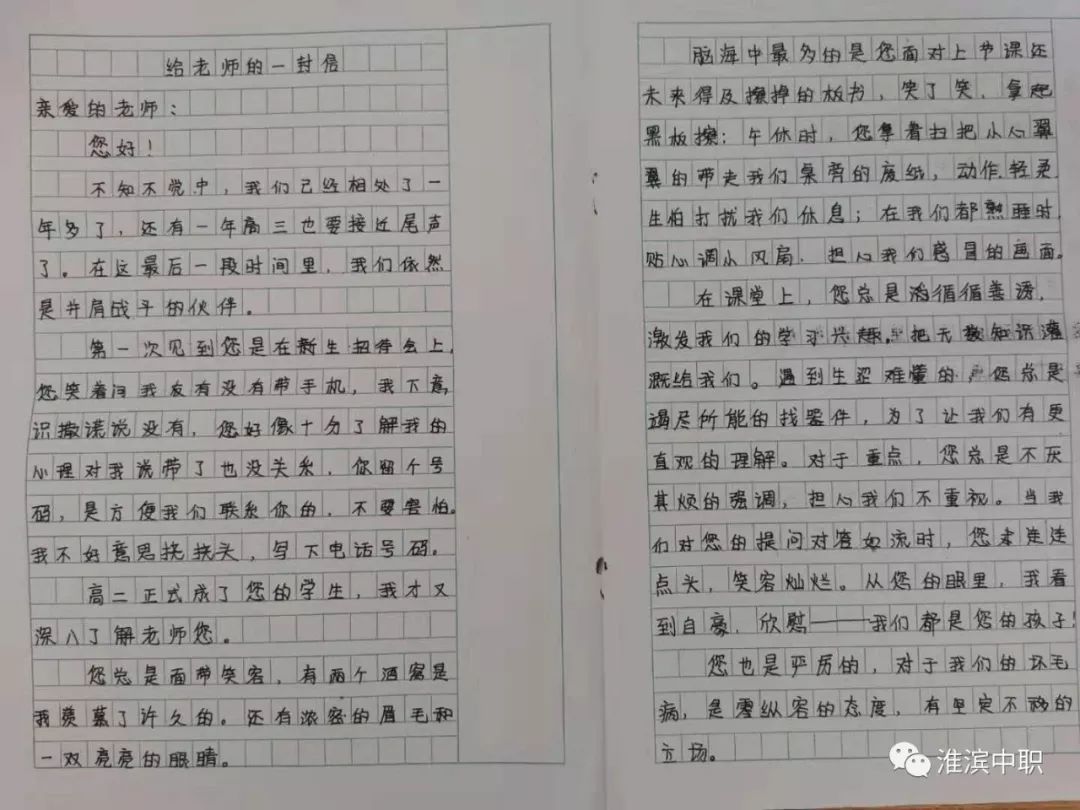 给老师的一封信
亲爱的老师：
您好！
不知不觉中，我们已经相处了一
年多了，还有一年高三也要接近尾声
了。在这最后一段时间里，我们依然
是并肩战斗的伙伴。
第一次见到您是在新生招待会上，
您笑着问我友有没有带手机，我下意
识撒谎说没有，您好像十分了解我的
心理对我说带了也没关系，你留个号
码，是方便我们联系你的，不要害怕。
我不好意思挠挠头，写下电话号码。
高二正式成了您的学生，我才又
深入了解老师您。
您总是面带笑容，有两个酒窝是
我羡慕了许久的。还有浓密的眉毛和
一双亮亮的眼睛。
脑海中最多的是您面对上节课还
未来得及擦掉的板书，笑了笑，拿起
黑板擦；午休时，您拿着扫把小心翼
翼的带走我们桌旁的废纸，动作轻柔
生怕打扰我们休息；在我们都熟睡时
贴心调小风扇，担心我们感冒的画面。
在课堂上，您总是循循善诱，
激发我们的学习兴趣。把无数知识灌
溉给我们。遇到生涩难懂的，您总是
竭尽所能的找器件，为了让我们有更
直观的理解。对于重点，您总是不厌
其烦的强调，担心我们不重视。当我
们对您的提问对答如流时，您未连连
点头，笑容灿烂。从您的眼里，我看
到自豪、欣慰——我们都是您的孩子！
您也是严厉的，对于我们的坏毛
病，是零纵容的态度，有坚定不移的
立场。
淮滨中职